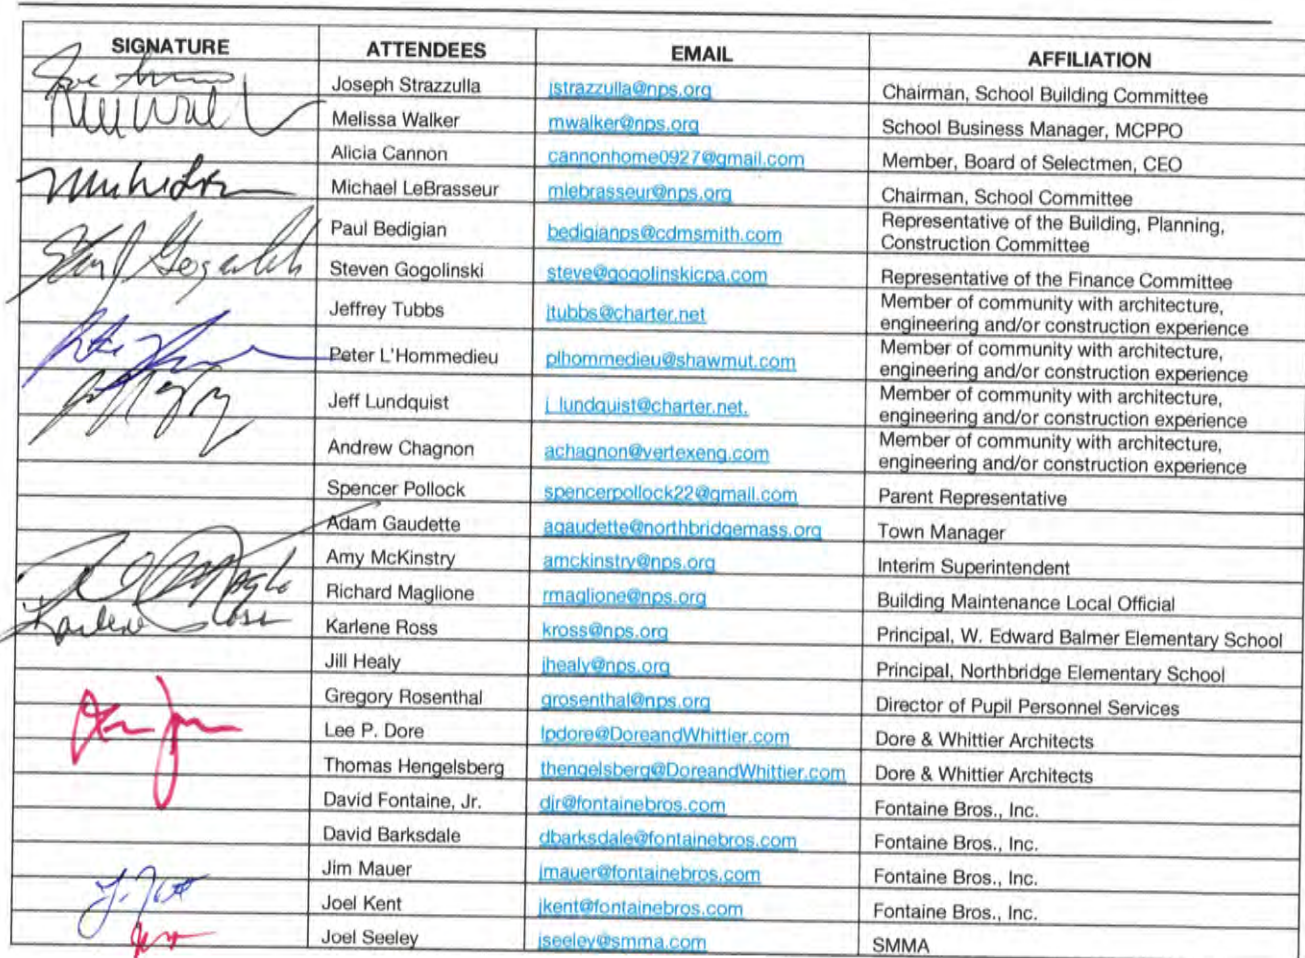 SIGNATURE ATTENDEES EMAIL AFFILIATION
Joseph Strazzulla jstrazzulla@nps.org Chairman, School Building Committee
Melissa Walker mwalker@nps.org School Business Manager, MCPPO
Alicia Cannon cannonhome0927@gmail.com Member, Board of Selectmen, CEO
Michael LeBrasseur mlebrasseur@nps.org Chairman, School Committee
Paul Bedigian bedigianps@cdmsmith.com Representative of the Building, Planning,
Construction Committee
Steven Gogolinski steve@gogolinskicpa.com Representative of the Finance Committee
Jeffrey Tubbs jtubbs@charter.net Member of community with architecture,
engineering and/or construction experience
Peter L'Hommedieu plhommedieu@shawmut.com Member of community with architecture,
engineering and/or construction experience
Jeff Lundquist j_lundquist@charter.net. Member of community with architecture,
engineering and/or construction experience
Andrew Chagnon achagnon@vertexeng.com Member of community with architecture,
engineering and/or construction experience
Spencer Pollock spencerpollock22@gmail.com Parent Representative
Adam Gaudette agaudette@northbridgemass.org Town Manager
Amy McKinstry amckinstry@nps.org Interim Superintendent
Richard Maglione rmaglione@nps.org Building Maintenance Local Official
Karlene Ross Karlene Ross kross@nps.org Principal, W. Edward Balmer Elementary School
Jill Healy jhealy@nps.org Principal, Northbridge Elementary School
Gregory Rosenthal grosenthal@nps.org Director of Pupil Personnel Services
Lee P. Dore lpdore@DoreandWhittier.com Dore & Whittier Architects
Thomas Hengelsberg thengelsberg@DoreandWhittier.com Dore & Whittier Architects
David Fontaine, Jr. djr@fontainebros.com Fontaine Bros., Inc.
David Barksdale dbarksdale@fontainebros.com Fontaine Bros., Inc.
Jim Mauer jmauer@fontainebros.com Fontaine Bros., Inc.
Joel Kent jkent@fontainebros.com Fontaine Bros., Inc.
Joel Seeley jseeley@smma.com SMMA